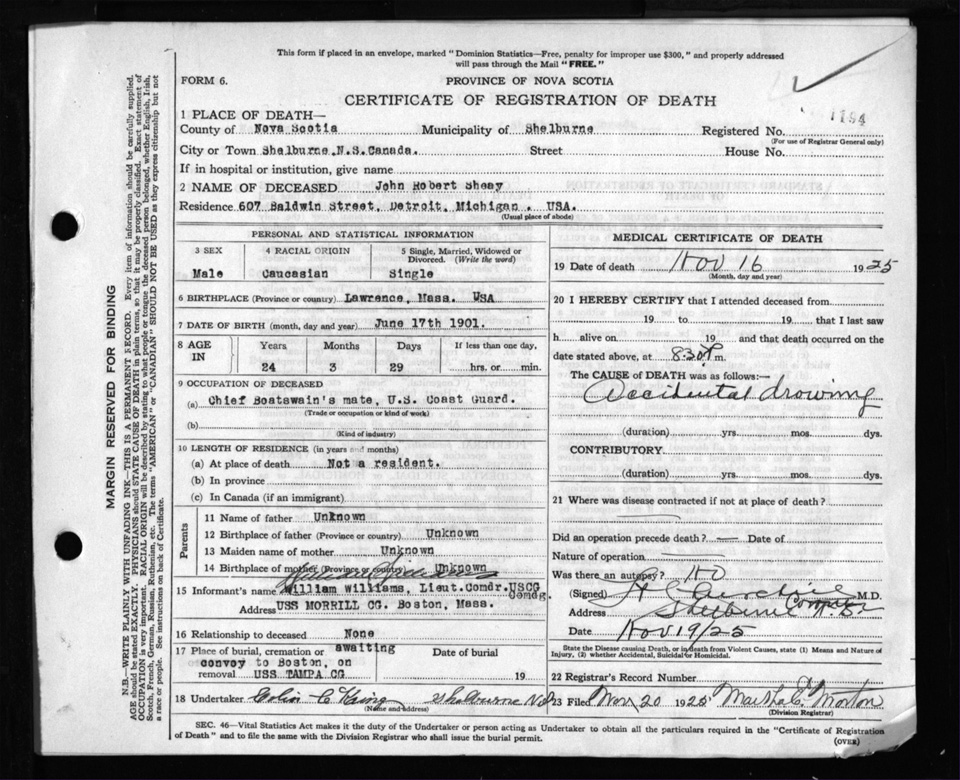 This form if placed in an envelope, marked "Dominion Statistics—Free, penalty for improper use $300," and properly addressed
will pass through the Mail "FREE."
FORM 6.
PROVINCE OF NOVA SCOTIA
CERTIFICATE OF REGISTRATION OF DEATH
1 PLACE OF DEATH—
County of Nova Scotia Municipality of Shelburne Registered No. 1154
(For use of Registrar General only)
City or Town Shelburne.N.S.Canada. Street House No.
If in hospital or institution, give name
2 NAME OF DECEASED John Robert Sheay
Residence 607 Baldwin Street, Detroit, Michigan . USA.
(Usual place of abode)
PERSONAL AND STATISTICAL INFORMATION
3 SEX 4 RACIAL ORIGIN 5 Single, Married, Widowed or
Divorced. (Write the word)
Male Caucasian Single
6 BIRTHPLACE (Province or country) Lawrence, Mass. USA
7 DATE OF BIRTH (month, day and year) June 17th 1901.
8 AGE IN Years Months Days If less than one day,
24 3 29 hrs. or min.
9 OCCUPATION OF DECEASED
(a) Chief Boatswain's mate, U.S. Coast Guard.
(Trade or occupation or kind of work)
(b)
(Kind of industry)
10 LENGTH OF RESIDENCE (in years and months)
(a) At place of death Not a resident.
(b) In province
(c) In Canada (if an immigrant)
Parents
11 Name of father Unknown
12 Birthplace of father (Province or country) Unknown
13 Maiden name of mother Unknown
14 Birthplace of mother (Province or country) Unknown
15 Informant's name William Williams, Lieut.Comdr.USCG
Comdg.
Address USS MORRILL CG. Boston, Mass.
16 Relationship to deceased None
17 Place of burial, cremation or awaiting Date of burial
convoy to Boston, on
removal USS TAMPA CG 19
18 Undertaker Colin C King Shelburne NS
(Name and address)
MEDICAL CERTIFICATE OF DEATH
19 Date of death Nov 16 1925
(Month, day and year)
20 I HEREBY CERTIFY that I attended deceased from
19 to 19 that I last saw
h alive on 19 and that death occurred on the
date stated above, at 8.30 P m.
The CAUSE of DEATH was as follows:—
Accidental drowing
(duration) yrs. mos. dys.
CONTRIBUTORY
(duration) yrs. mos. dys.
21 Where was disease contracted if not at place of death?
Did an operation precede death? — Date of
Nature of operation
Was there an autopsy? No
(Signed) M.D.
Address Shelburne N.S.
Date Nov 19/25
State the Disease causing Death, or in death from Violent Causes, state (1) Means and Nature of
Injury, (2) whether Accidental, Suicidal or Homicidal.
22 Registrar's Record Number
23 Filed Nov 20 1925 Morton
(Division Registrar)
SEC. 46—Vital Statistics Act makes it the duty of the Undertaker or person acting as Undertaker to obtain all the particulars required in the "Certificate of Registration
of Death" and to file the same with the Division Registrar who shall issue the burial permit.
(OVER)
MARGIN RESERVED FOR BINDING
N.B.—WRITE PLAINLY WITH UNFADING INK—THIS IS A PERMANENT RECORD. Every item of information should be carefully supplied.
AGE should be stated EXACTLY. PHYSICIANS should STATE CAUSE OF DEATH in plain terms, so that it may be properly classified. Exact statement of
OCCUPATION is very important. RACIAL ORIGIN will be described by stating to what people or tongue the deceased person belonged, whether English, Irish,
Scotch, French, German, Russian, Ruthenian, etc. The terms "AMERICAN" or "CANADIAN" SHOULD NOT BE USED as they express citizenship but not
a race or people. See instructions on back of Certificate.